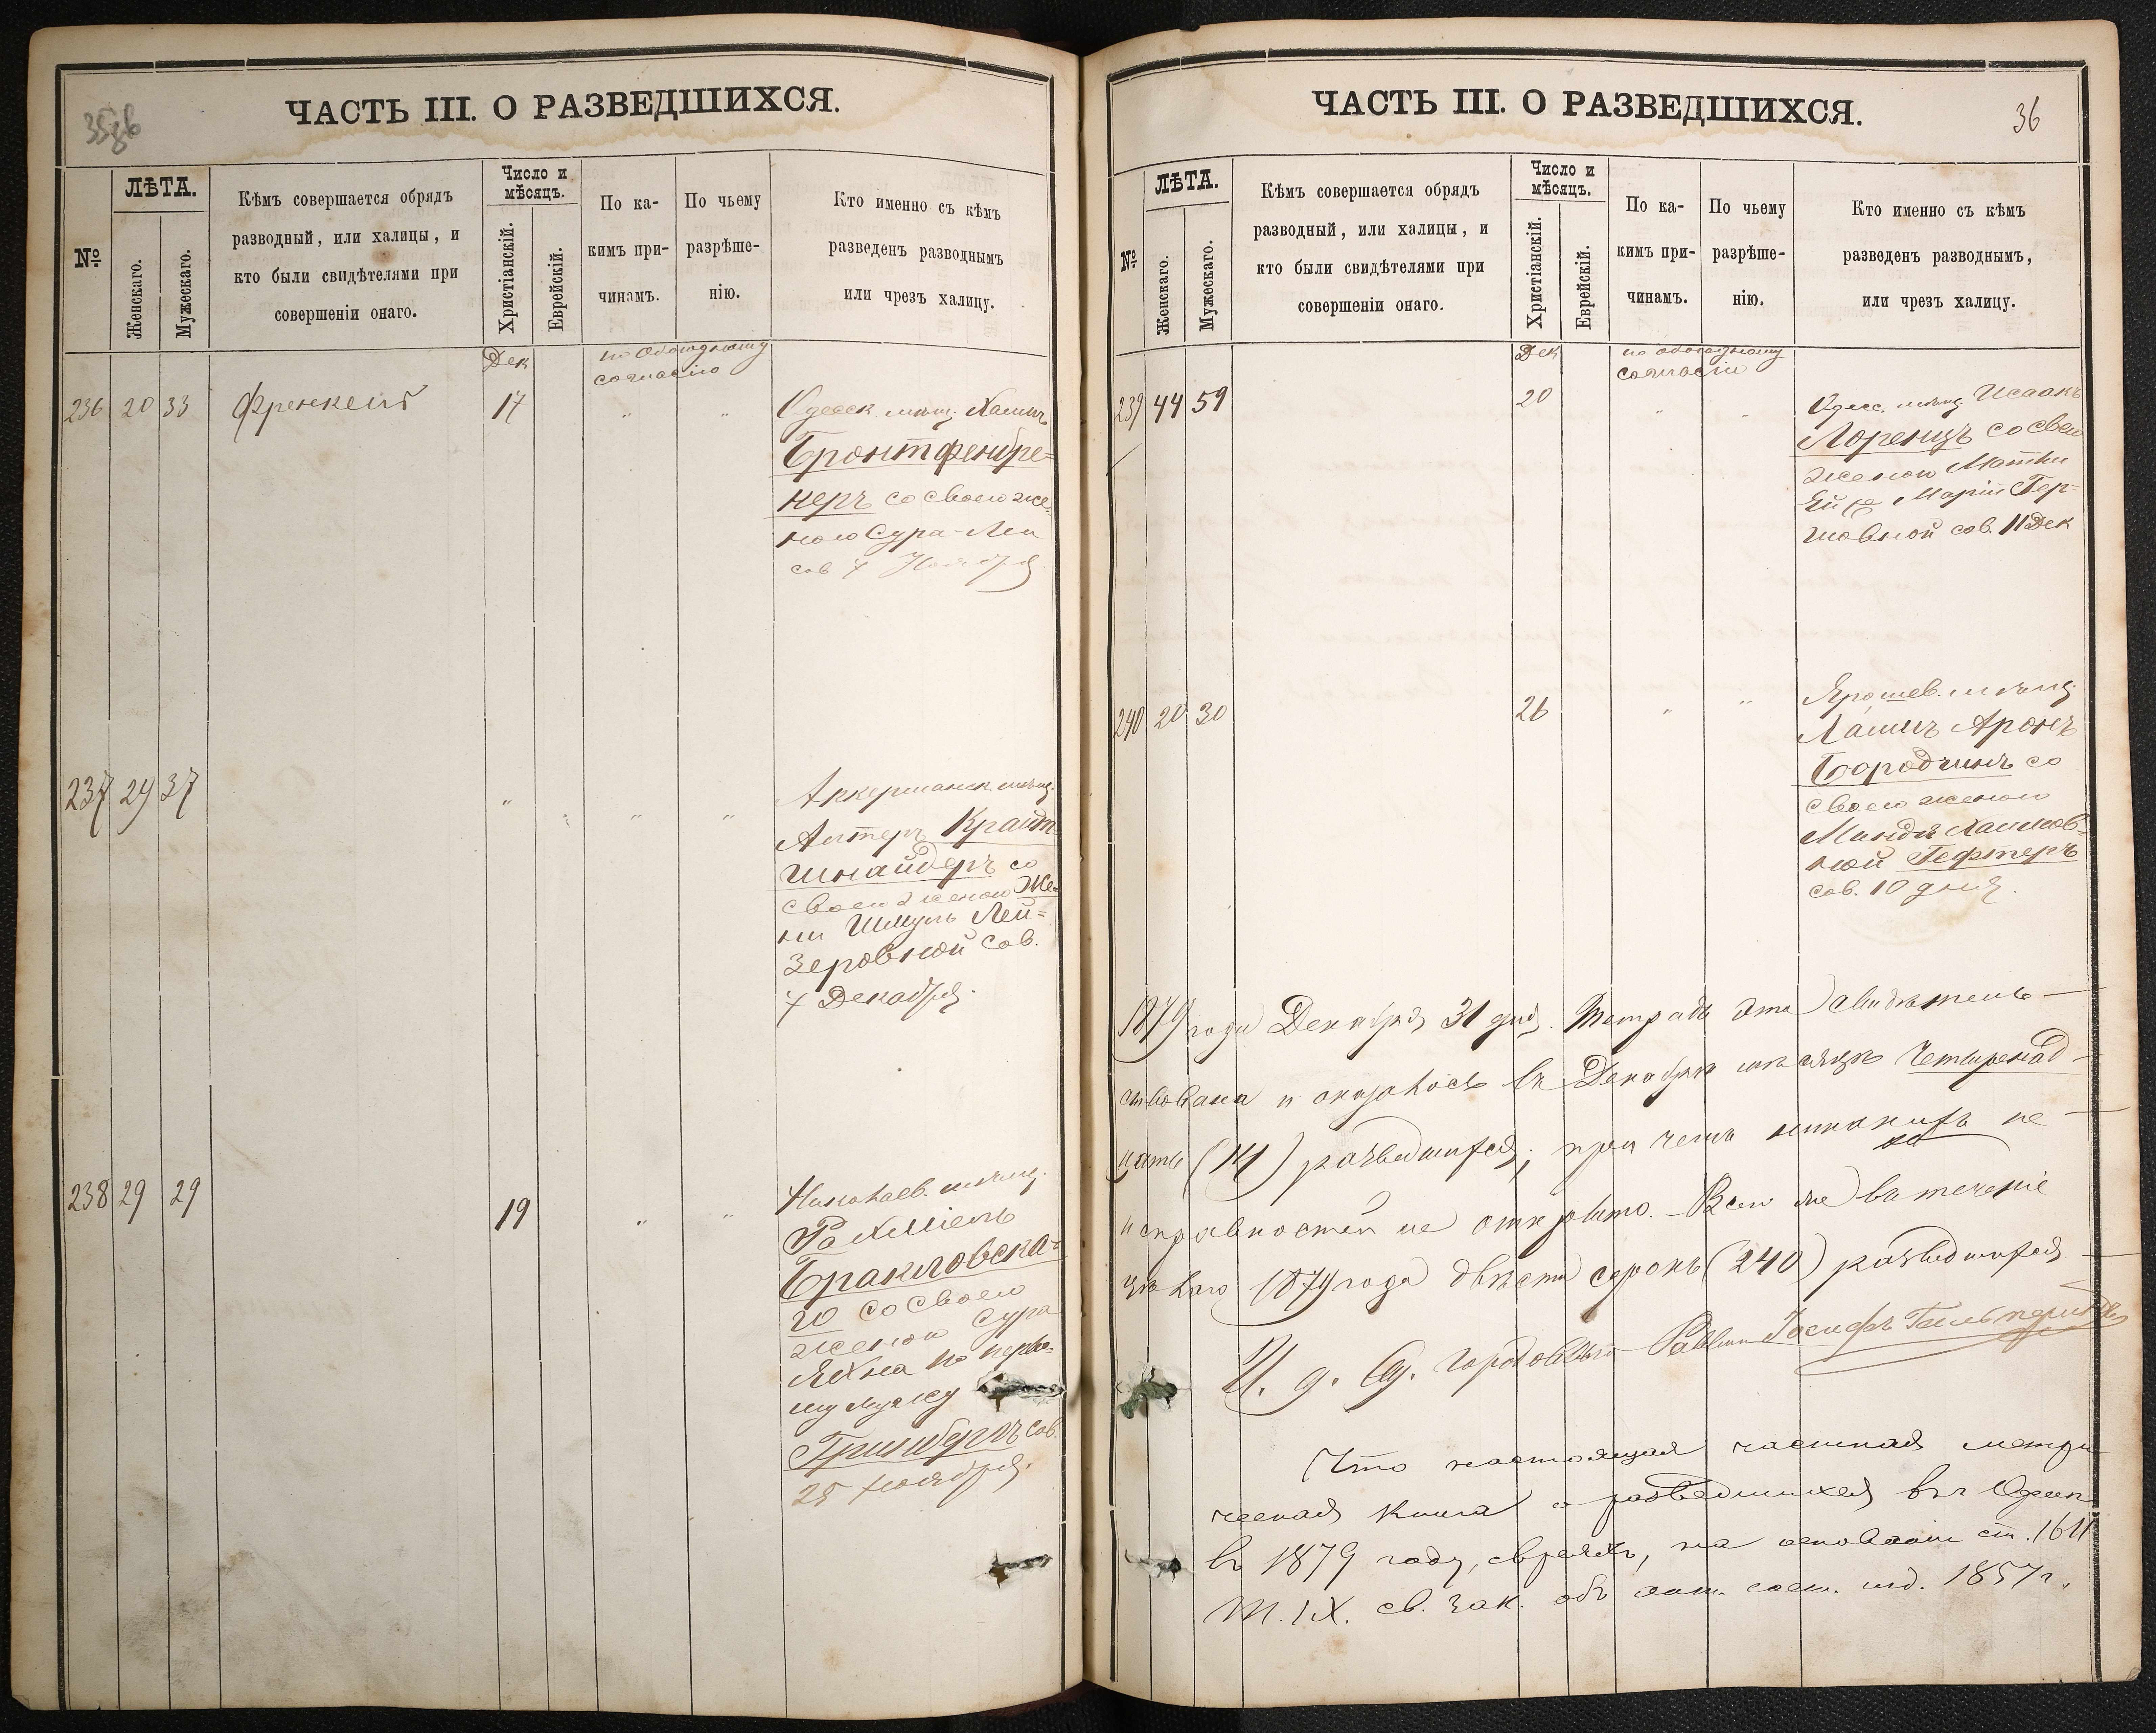 35об
ЧАСТЬ III. О РАЗВЕДШИХСЯ.
№
ЛѢТА.
Женскаго.
Мужескаго.
Кѣмъ совершается обрядъ
разводный, или халицы, и
кто были свидѣтелями при
совершеніи онаго.
Число и
мѣсяцъ.
Христіанскій.
Еврейскій.
По ка-
кимъ при-
чинамъ.
По чьему
разрѣше-
нію.
Кто именно съ кѣмъ
разведенъ разводнымъ
или чрезъ халицу.
Дек
по обоюдному
согласію
236 20 33 Френкель 17 " " Одесск. мѣщ. Хаимъ
Бронтфенбре=
неръ со своею же-
ною Сура-Леи
сов 7 Ноября
237 29 37 " " " " Аккерманск. мѣщ.
Алтеръ Крайт-
шнайдеръ со
своею женою Же-
ни Шмуль Лей=
зеровной сов.
7 Декабря.
238 29 29 19 " " Николаев. мѣщ.
Рахміель
Бракловска-
го со своею
женою Сура
Яхна по перво-
му мужу
Гринбергъ сов.
25 Ноября.
ЧАСТЬ III. О РАЗВЕДШИХСЯ.
36
№
ЛѢТА.
Женскаго.
Мужескаго.
Кѣмъ совершается обрядъ
разводный, или халицы, и
кто были свидѣтелями при
совершеніи онаго.
Число и
мѣсяцъ.
Христіанскій.
Еврейскій.
По ка-
кимъ при-
чинамъ.
По чьему
разрѣше-
нію.
Кто именно съ кѣмъ
разведенъ разводнымъ,
или чрезъ халицу.
Дек
по обоюдному
согласію
239 44 59 20 " " Одесс. мѣщ. Исаакъ
Лоренцъ со своею
женою
Маріи Гер-
шовной сов. 11 Дек
240 20 30 26 " " Ярошев. мѣщ.
Хаимъ Аронъ
Бородчинъ со
своею женою
Миндѣ Хаимов-
ной Гефтеръ
сов. 10 дня.
1879 года Декабря 31 дня. Тетрадь эта свидѣтель-
ствована и оказалось въ Декабрѣ мѣсяцѣ четырнад-
цать (14) разведшихся; при чемъ никакихъ не-
исправностей не открыто. Всего же въ теченіе
цѣлаго 1879 года двѣсти сорокъ (240) разведшихся.
И. д. Од. Городоваго Раввина Іосифъ
Что настоящая частная метри-
ческая книга о разведшихся въ г Одессѣ
въ 1879 году, евреяхъ, на основаніи ст. 1611
Т. IX. св. Зак. объ сост. изд. 1857 г.